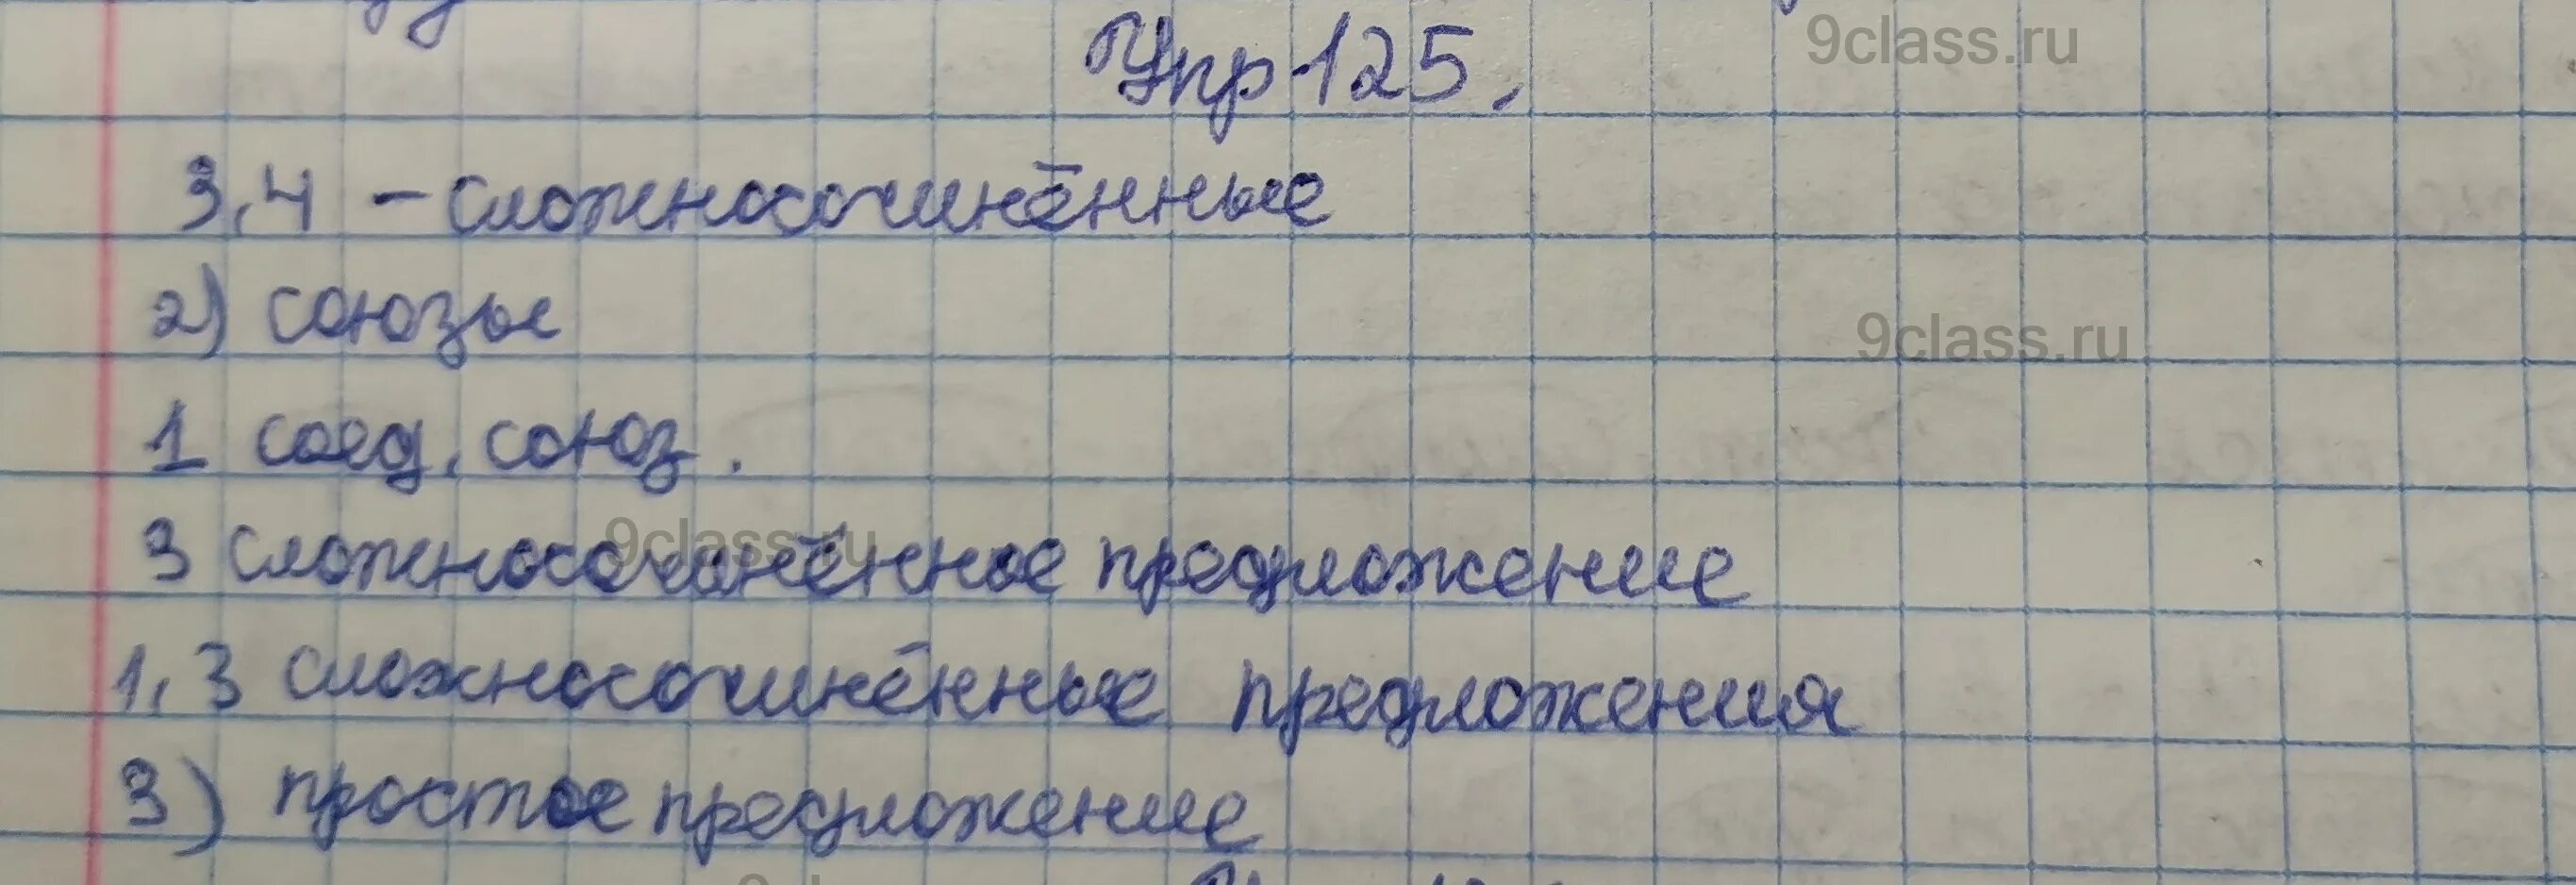 Упр 125.
9class.ru
3,4 - сложносочинённые
2) союзы
9class.ru
1 соед. союз.
9class.ru
3 сложносочинённое предложение
1,3 сложносочинённые предложения
3) простое предложение